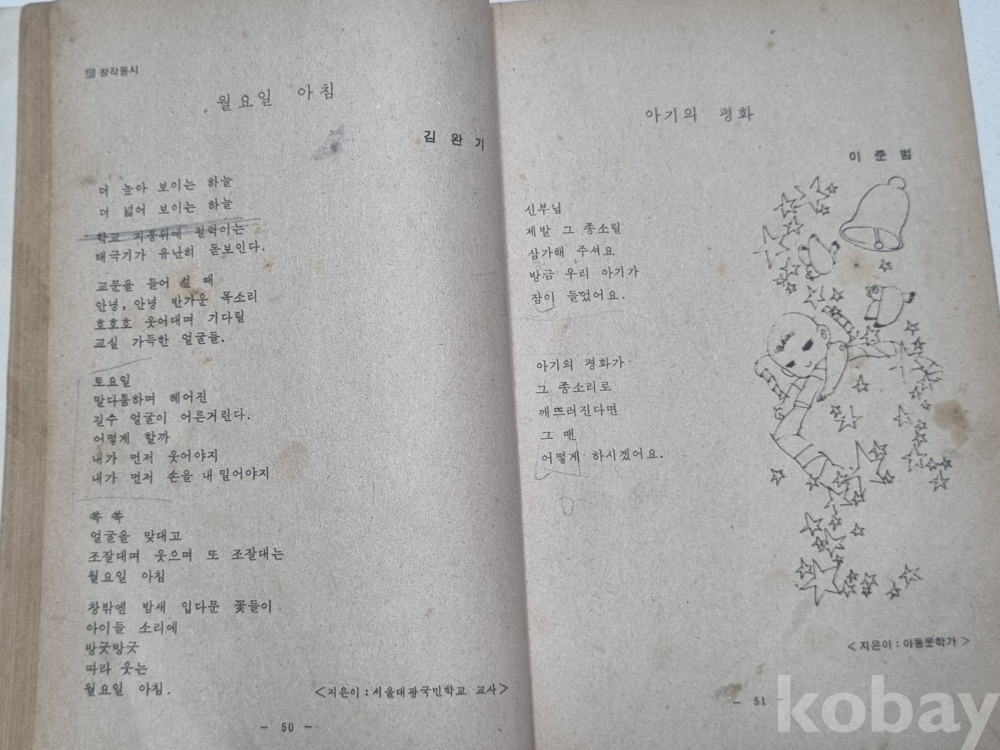 창작동시
월요일 아침
김완기
더 높아 보이는 하늘
더 넓어 보이는 하늘
학교 지붕위에 펄럭이는
태극기가 유난히 돋보인다.
교문을 들어 설 때
안녕, 안녕 반가운 목소리
호호호 웃어대며 기다릴
교실 가득한 얼굴들.
토요일
말다툼하며 헤어진
길수 얼굴이 어른거린다.
어떻게 할까
내가 먼저 웃어야지
내가 먼저 손을 내밀어야지
쏙 쏙
얼굴을 맞대고
조잘대며 웃으며 또 조잘대는
월요일 아침
창밖엔 밤새 입다문 꽃들이
아이들 소리에
방긋방긋
따라 웃는
월요일 아침.
<지은이 : 서울대광국민학교 교사>
- 50 -
아기의 평화
이준범
신부님
제발 그 종소릴
삼가해 주셔요
방금 우리 아기가
잠이 들었어요.
아기의 평화가
그 종소리로
깨뜨러진다면
그 땐
어떻게 하시겠어요.
<지은이 : 아동문학가>
- 51 -
kobay